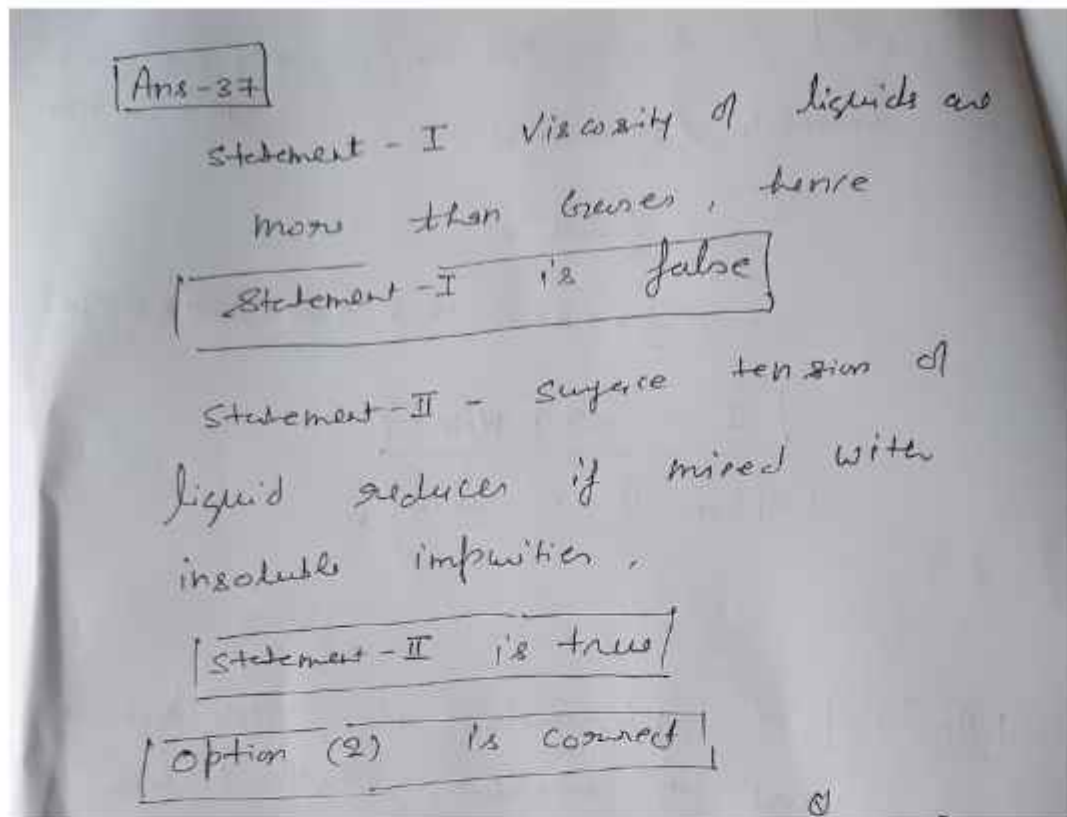 Ans-37
Statement - I Viscosity of liquids are
more than Gases, hence
Statement - I is false
Statement - II - Surface tension of
liquid reduces if mixed with
insoluble impurities.
Statement - II is true
Option (2) is correct